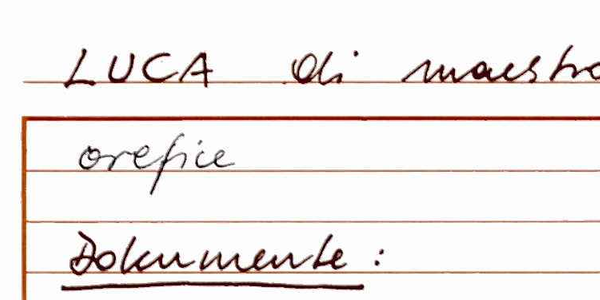 LUCA di maestro
orefice
Dokumente: